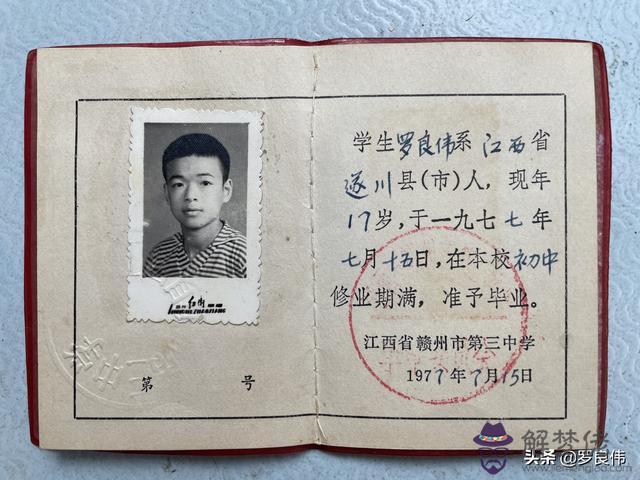 学生罗良伟系江西省
遂川县(市)人,现年
17岁,于一九七七年
七月十五日,在本校初中
修业期满,准予毕业。
江西省赣州市第三中学
1977年7月15日
第 号
解梦佬
头条 @罗良伟